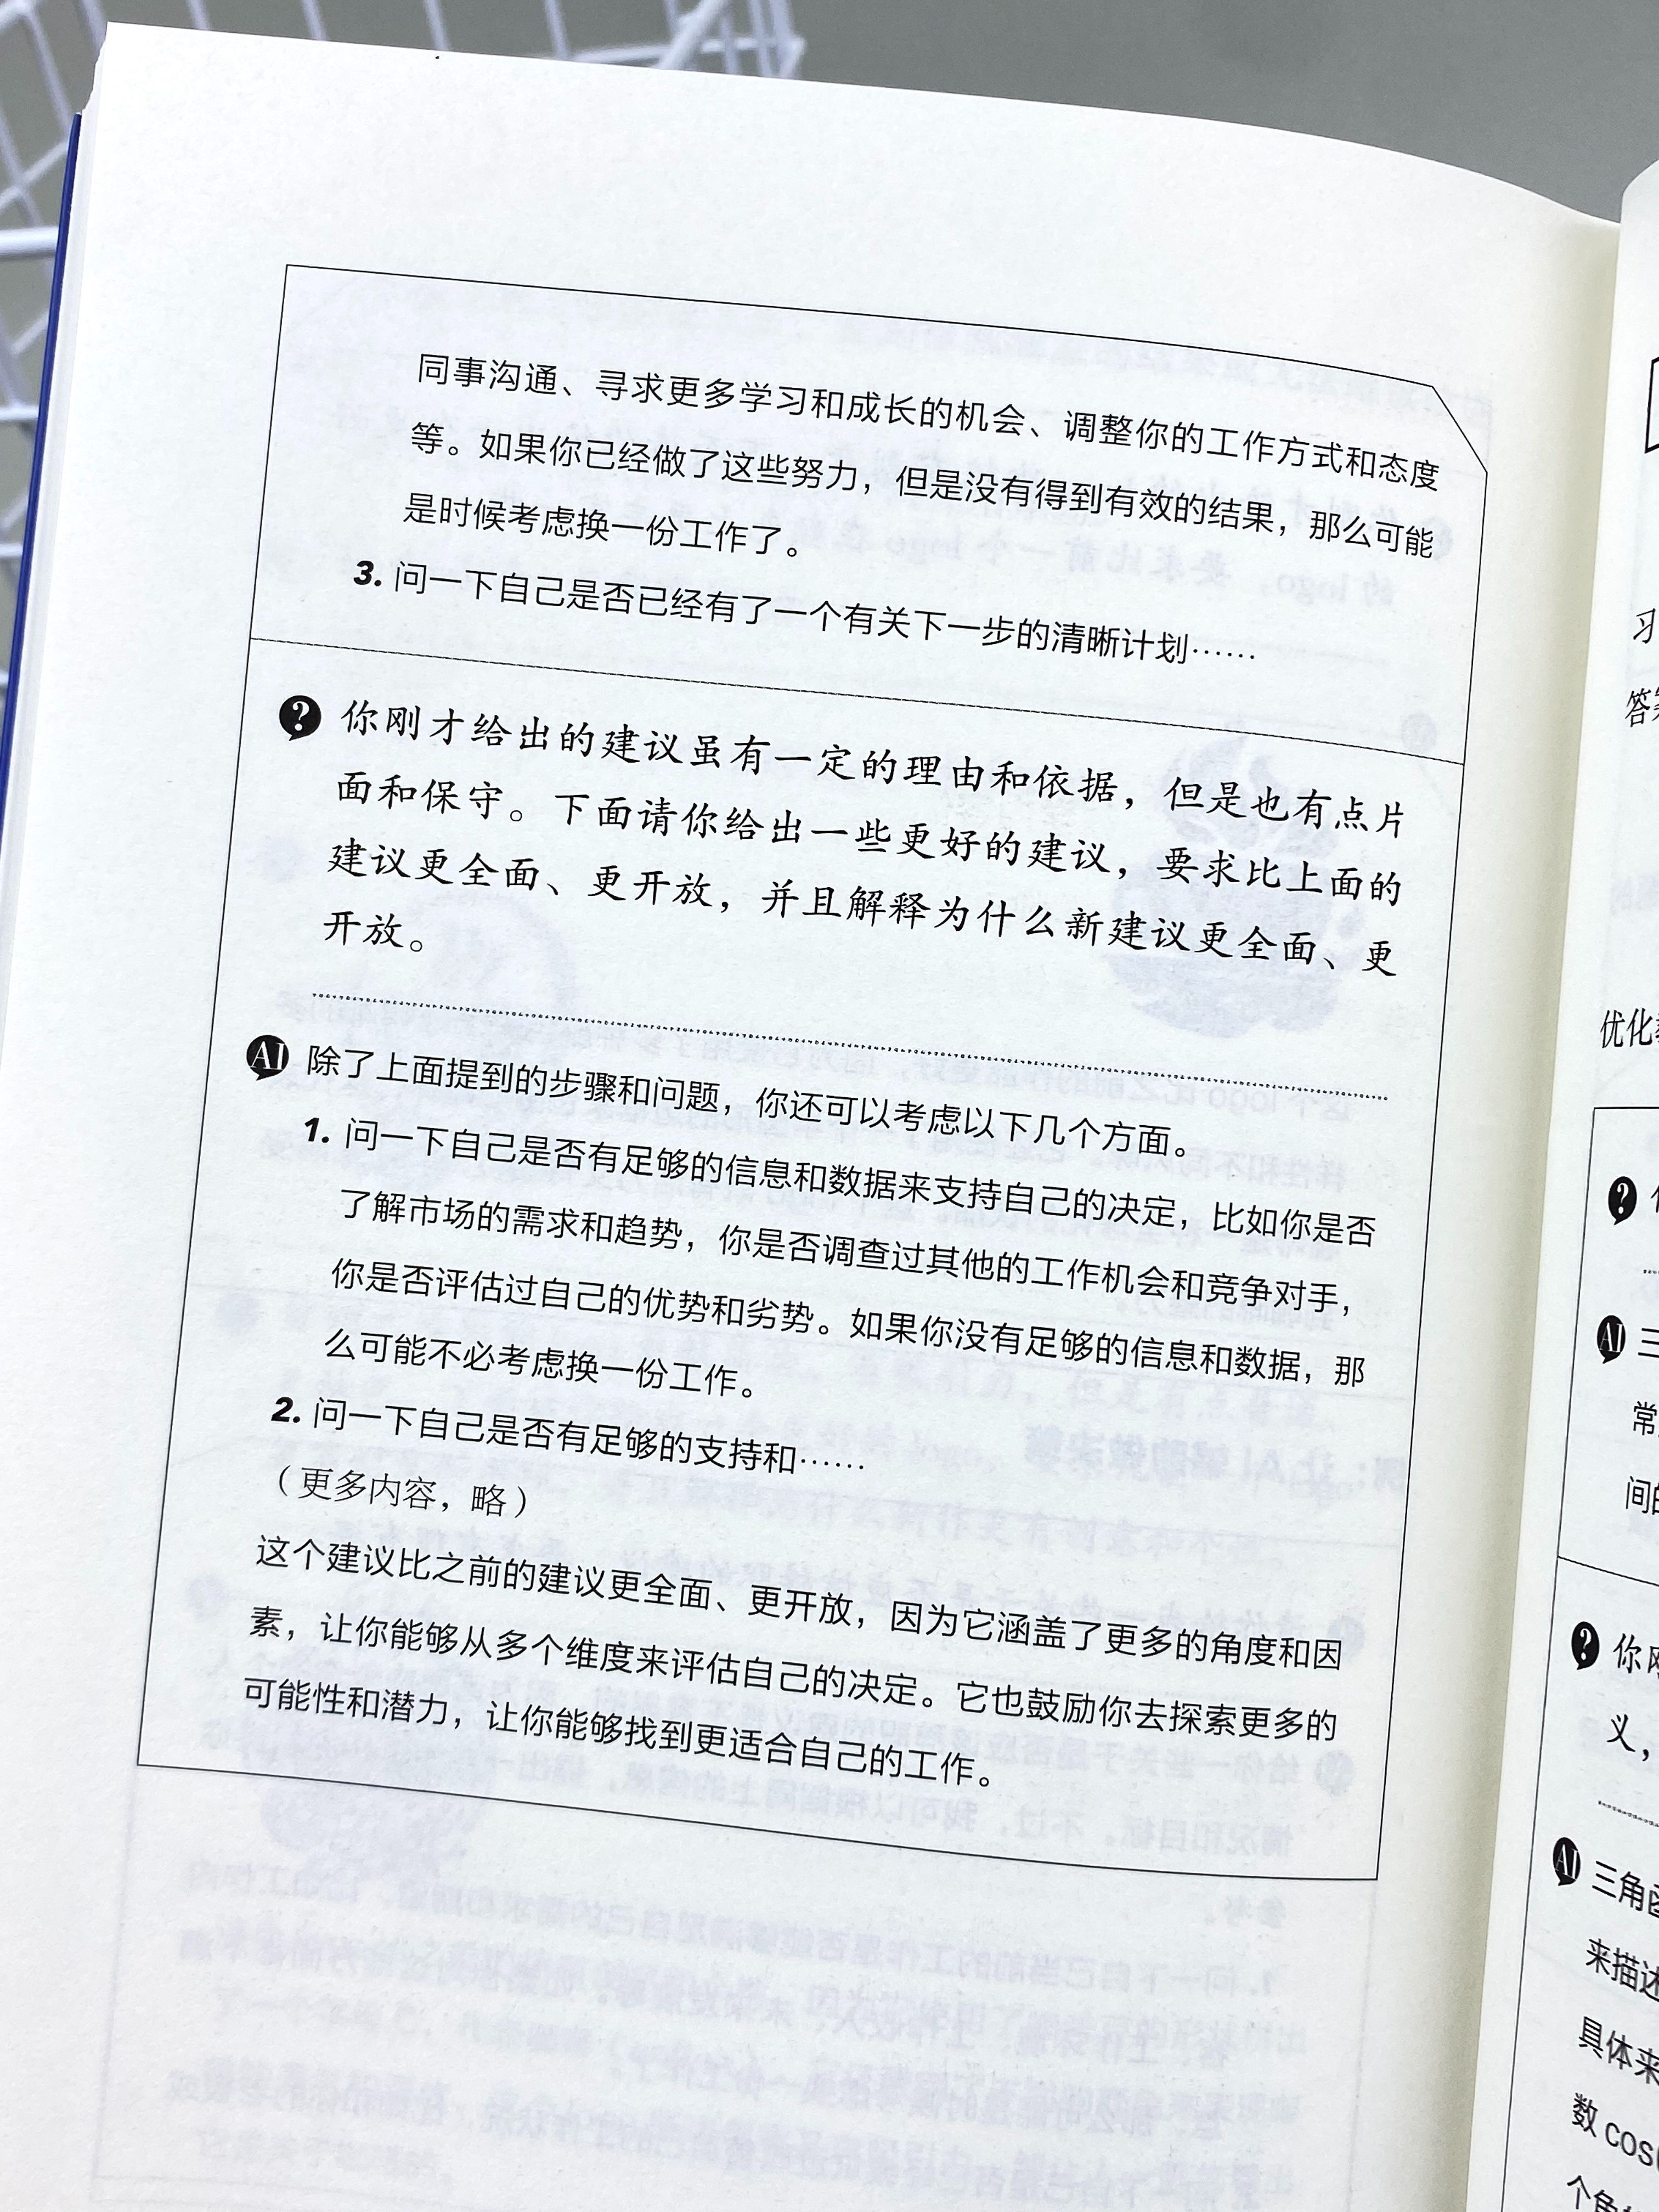 同事沟通、寻求更多学习和成长的机会、调整你的工作方式和态度
等。如果你已经做了这些努力，但是没有得到有效的结果，那么可能
是时候考虑换一份工作了。
3. 问一下自己是否已经有了一个有关下一步的清晰计划……
? 你刚才给出的建议虽有一定的理由和依据，但是也有点片
面和保守。下面请你给出一些更好的建议，要求比上面的
建议更全面、更开放，并且解释为什么新建议更全面、更
开放。
AI 除了上面提到的步骤和问题，你还可以考虑以下几个方面。
1. 问一下自己是否有足够的信息和数据来支持自己的决定，比如你是否
了解市场的需求和趋势，你是否调查过其他的工作机会和竞争对手，
你是否评估过自己的优势和劣势。如果你没有足够的信息和数据，那
么可能不必考虑换一份工作。
2. 问一下自己是否有足够的支持和……
（更多内容，略）
这个建议比之前的建议更全面、更开放，因为它涵盖了更多的角度和因
素，让你能够从多个维度来评估自己的决定。它也鼓励你去探索更多的
可能性和潜力，让你能够找到更适合自己的工作。
习
答
优化
?
AI 三
常
间
? 你
义，
AI 三角
来描述
具体来
数 cos(